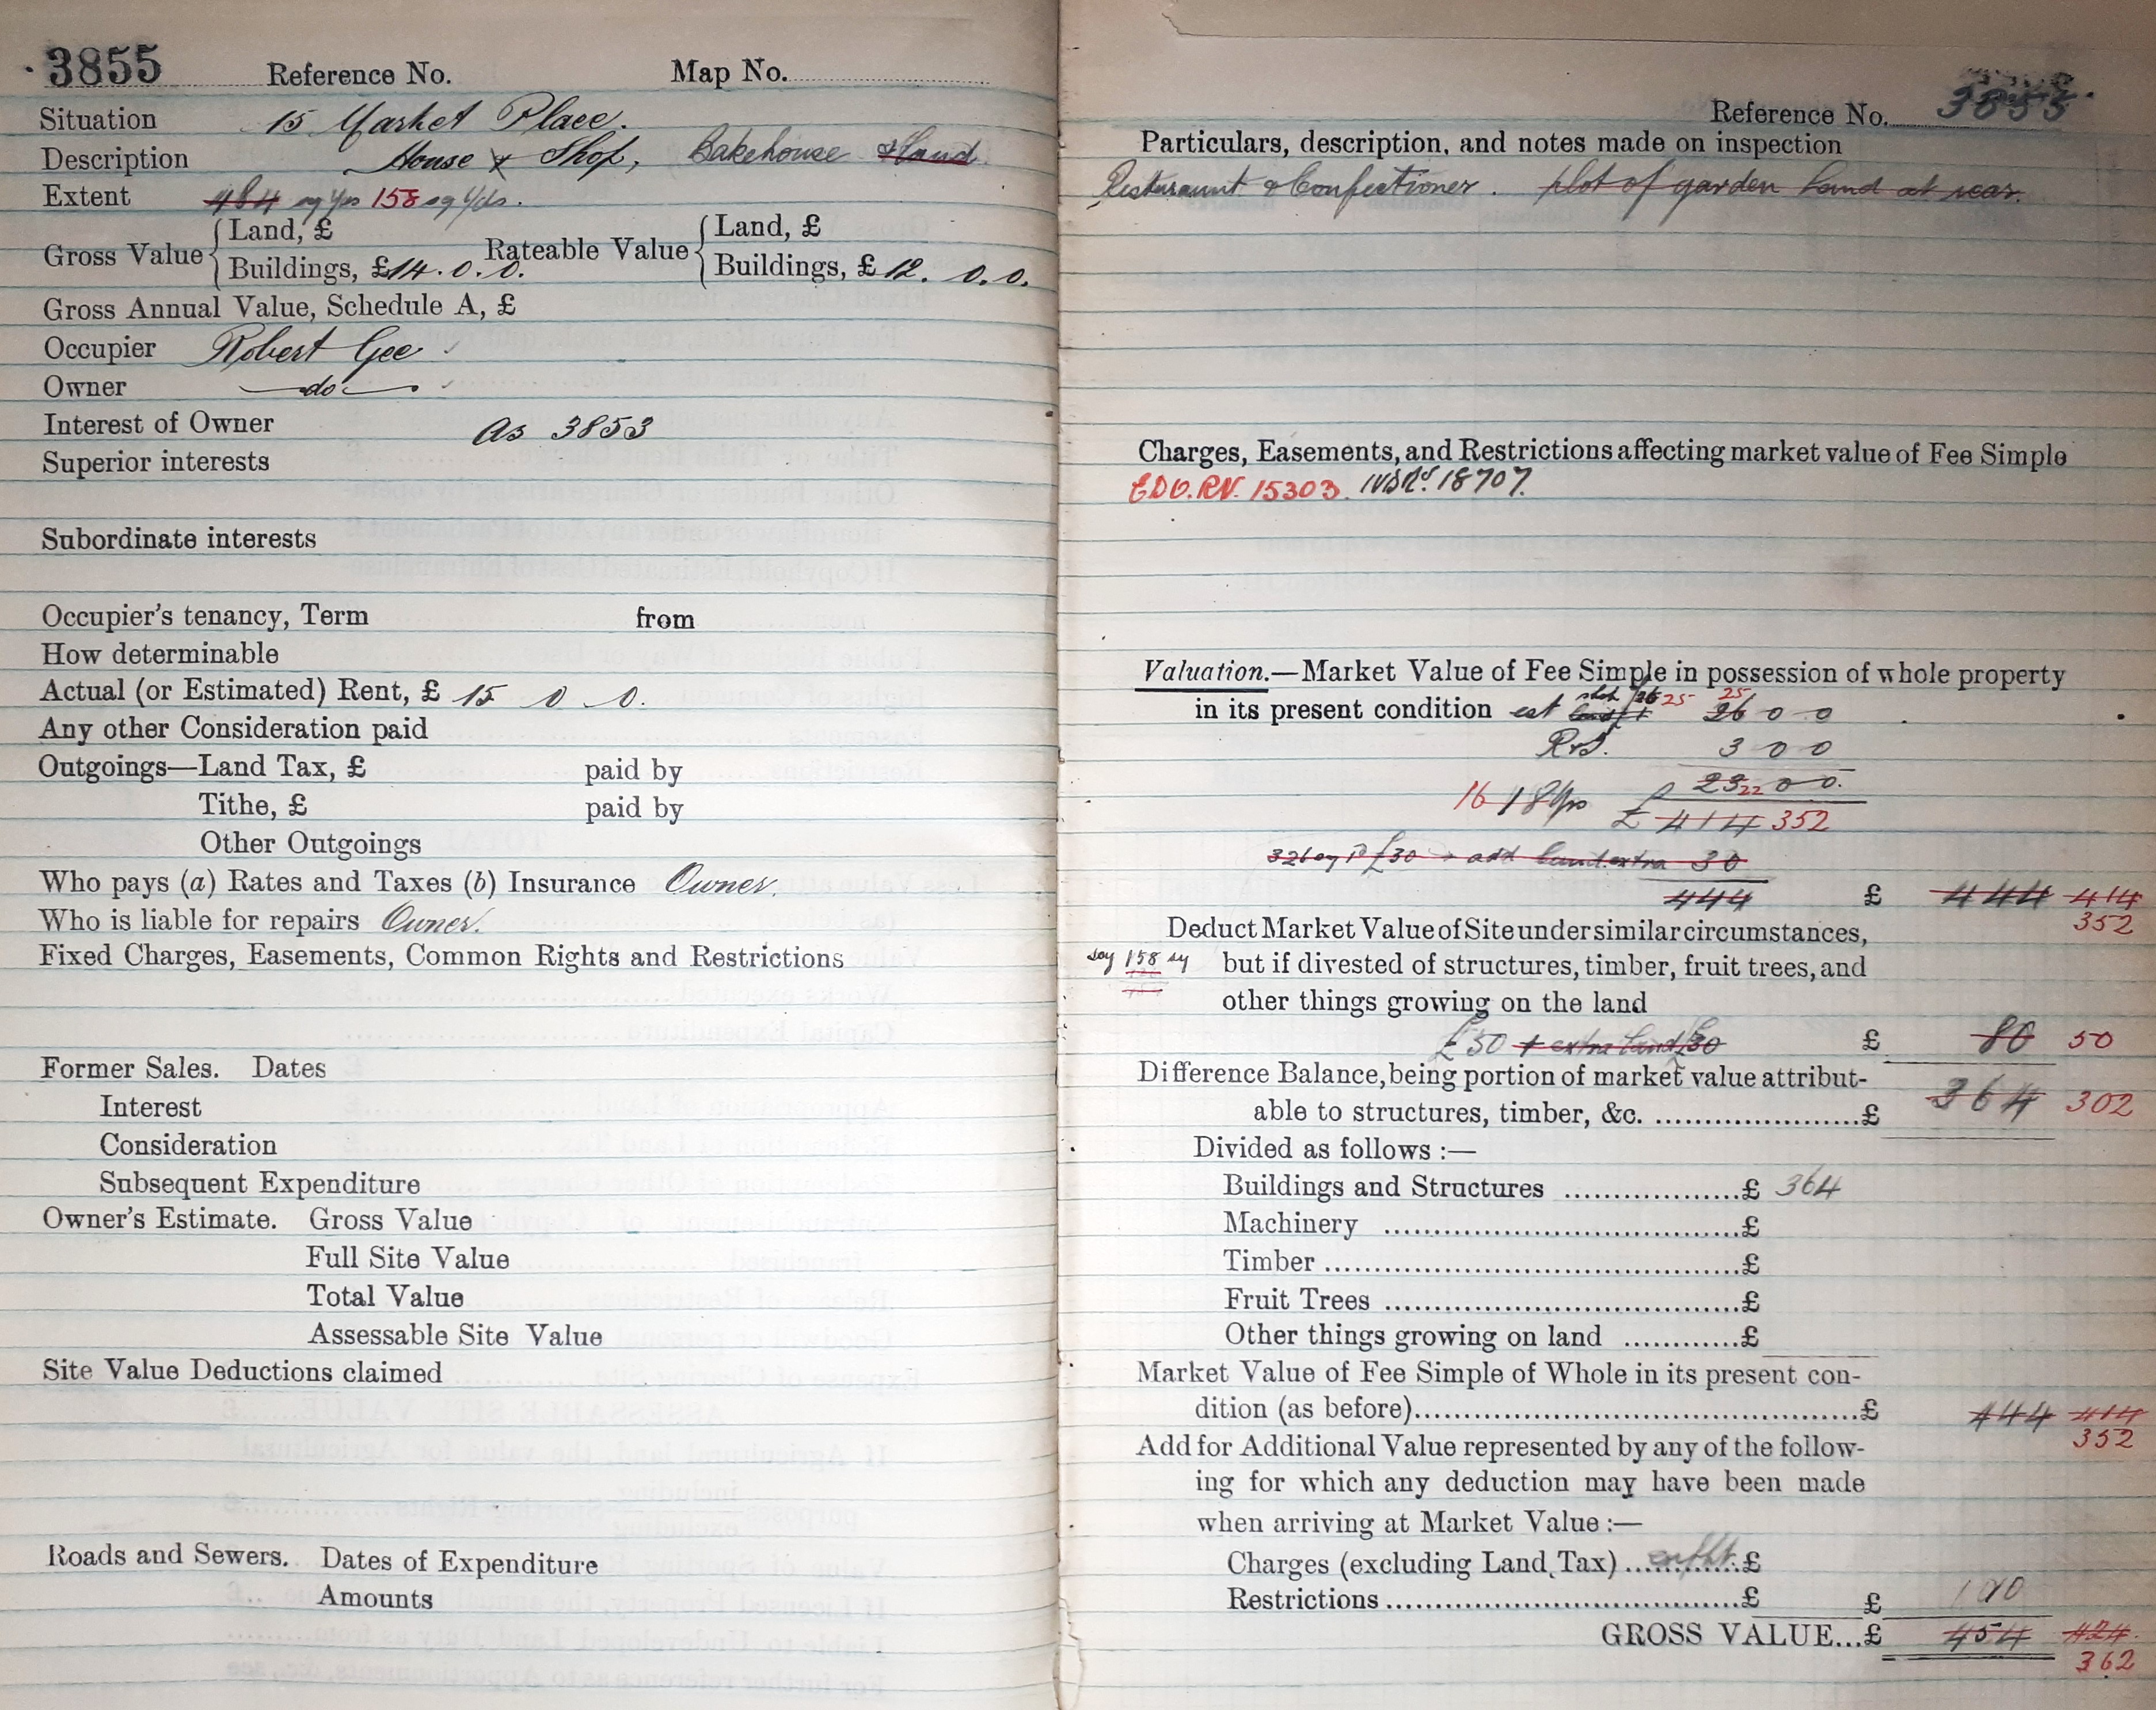 3855 Reference No. Map No.
Situation 15 Market Place.
Description House & Shop, Bakehouse & land
Extent 484 sq yds 158 sq yds.
Gross Value { Land, £ Rateable Value { Land, £
Buildings, £14. 0. 0. Buildings, £ 12. 0. 0.
Gross Annual Value, Schedule A, £
Occupier Robert Gee
Owner do
Interest of Owner As 3853
Superior interests
Subordinate interests
Occupier's tenancy, Term from
How determinable
Actual (or Estimated) Rent, £ 15 0 0.
Any other Consideration paid
Outgoings—Land Tax, £ paid by
Tithe, £ paid by
Other Outgoings
Who pays (a) Rates and Taxes (b) Insurance Owner.
Who is liable for repairs Owner.
Fixed Charges, Easements, Common Rights and Restrictions
Former Sales. Dates
Interest
Consideration
Subsequent Expenditure
Owner's Estimate. Gross Value
Full Site Value
Total Value
Assessable Site Value
Site Value Deductions claimed
Roads and Sewers. Dates of Expenditure
Amounts
Reference No. 3855
Particulars, description, and notes made on inspection
Resturaunt & Confectioner. plot of garden land at rear.
Charges, Easements, and Restrictions affecting market value of Fee Simple
EDO. RV. 15303. 18707.
Valuation.—Market Value of Fee Simple in possession of whole property
in its present condition est 26 25 26 25 0 0
3 0 0
23 22 0 0.
16 18 yrs £ 414 352
326 sy £30 add land extra 30
444 £ 444 414
352
Deduct Market Value of Site under similar circumstances,
say 158 sy but if divested of structures, timber, fruit trees, and
other things growing on the land
£50 + extra land £30 £ 80 50
Difference Balance, being portion of market value attribut-
able to structures, timber, &c. £ 364 302
Divided as follows :—
Buildings and Structures £ 364
Machinery £
Timber £
Fruit Trees £
Other things growing on land £
Market Value of Fee Simple of Whole in its present con-
dition (as before) £ 444 414
352
Add for Additional Value represented by any of the follow-
ing for which any deduction may have been made
when arriving at Market Value :—
Charges (excluding Land Tax) £
Restrictions £ £ 10
GROSS VALUE...£ 454 424
362